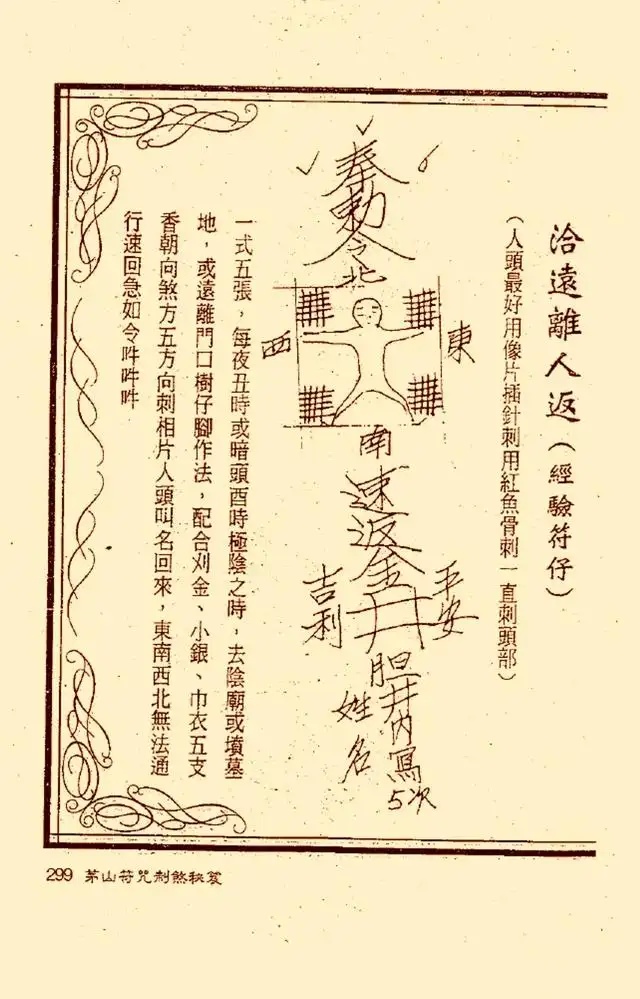 洽遠離人返(經驗符仔)
(人頭最好用像片插針刺用紅魚骨刺一直刺頭部)
奉勅令
北
東
西
南
速返金井
平安
吉利
胆井內寫
5次
姓名
一式五張，每夜丑時或暗頭酉時極陰之時，去陰廟或墳墓
地，或遠離門口樹仔腳作法，配合刈金、小銀、巾衣五支
香朝向煞方五方向刺相片人頭叫名回來，東南西北無法通
行速回急如令吽吽吽
299 茅山符咒制煞秘笈